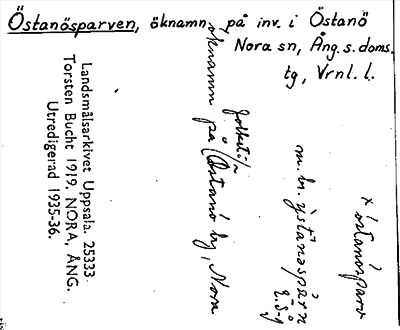 Östanösparven, öknamn på inv. i Östanö
Nora sn, Ång. s. doms.
tg, Vrnl. l.
x) östanösparv
m. br. ÿstanəspárn
öknamn på (Östanö by, Nora
Landsmålsarkivet Uppsala. 25333
Torsten Bucht 1919. NORA, ÅNG.
Utredigerad 1935-36.